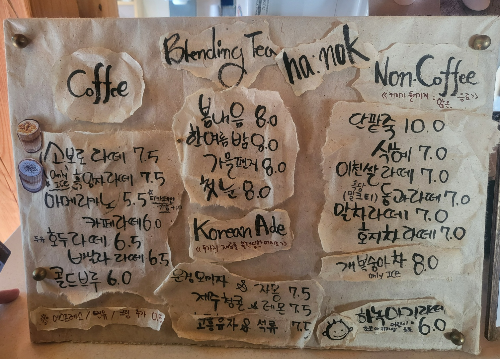 Blending Tea
ha.nok
Coffee
Non.Coffee
소보루라떼 7.5
only ICE 흑임자라떼 7.5
아메리카노 5.5
카페라떼 6.0
호두라떼 6.5
바닐라 라떼 6.5
콜드브루 6.0
봄내음 8.0
한여름밤 8.0
가을편지 8.0
첫눈 8.0
Korean Ade
문경 오미자 & 자몽 7.5
제주청귤 & 레몬 7.5
고흥유자 & 석류 7.5
단팥죽 10.0
식혜 7.0
이천쌀라떼 7.0
(밀크티) 동과라떼 7.0
말차라떼 7.0
호지차라떼 7.0
개복숭아차 8.0
only ICE
한옥아기라떼 6.0